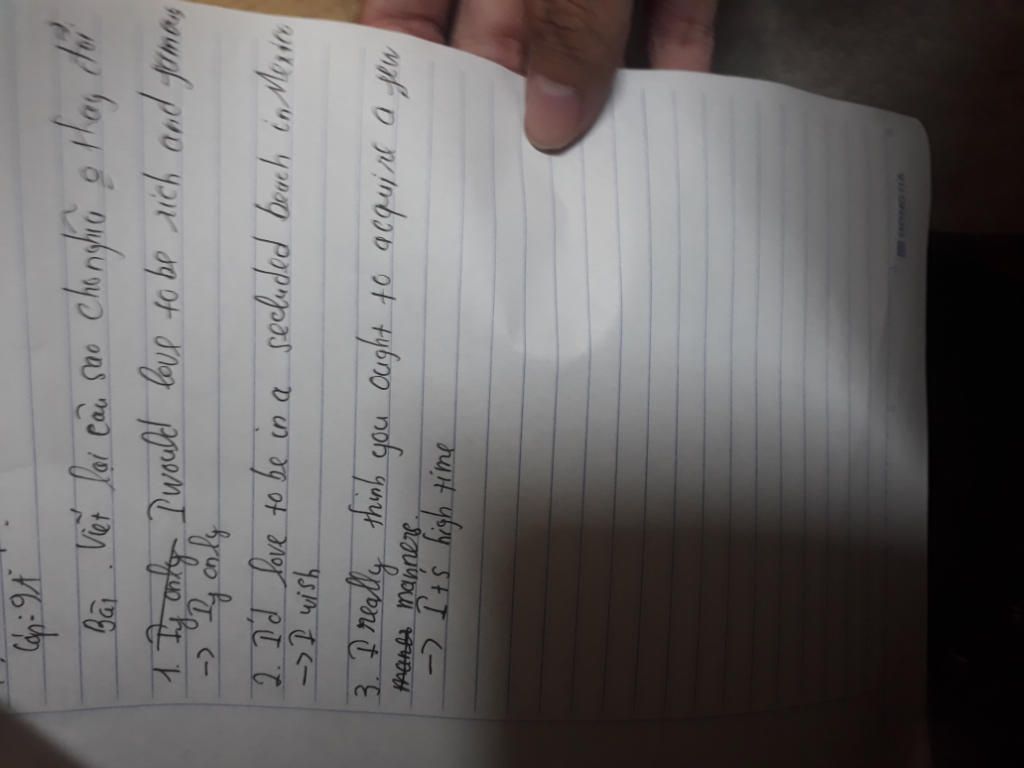 Lớp: 9A
Bài. Viết lại câu sao cho nghĩa o thay đổi
1. I would love to be rich and femous
-> If only
2. I'd love to be in a secluded beach in Mexico
-> I wish
3. I really think you ought to acquire a few
mannere
-> It's high time